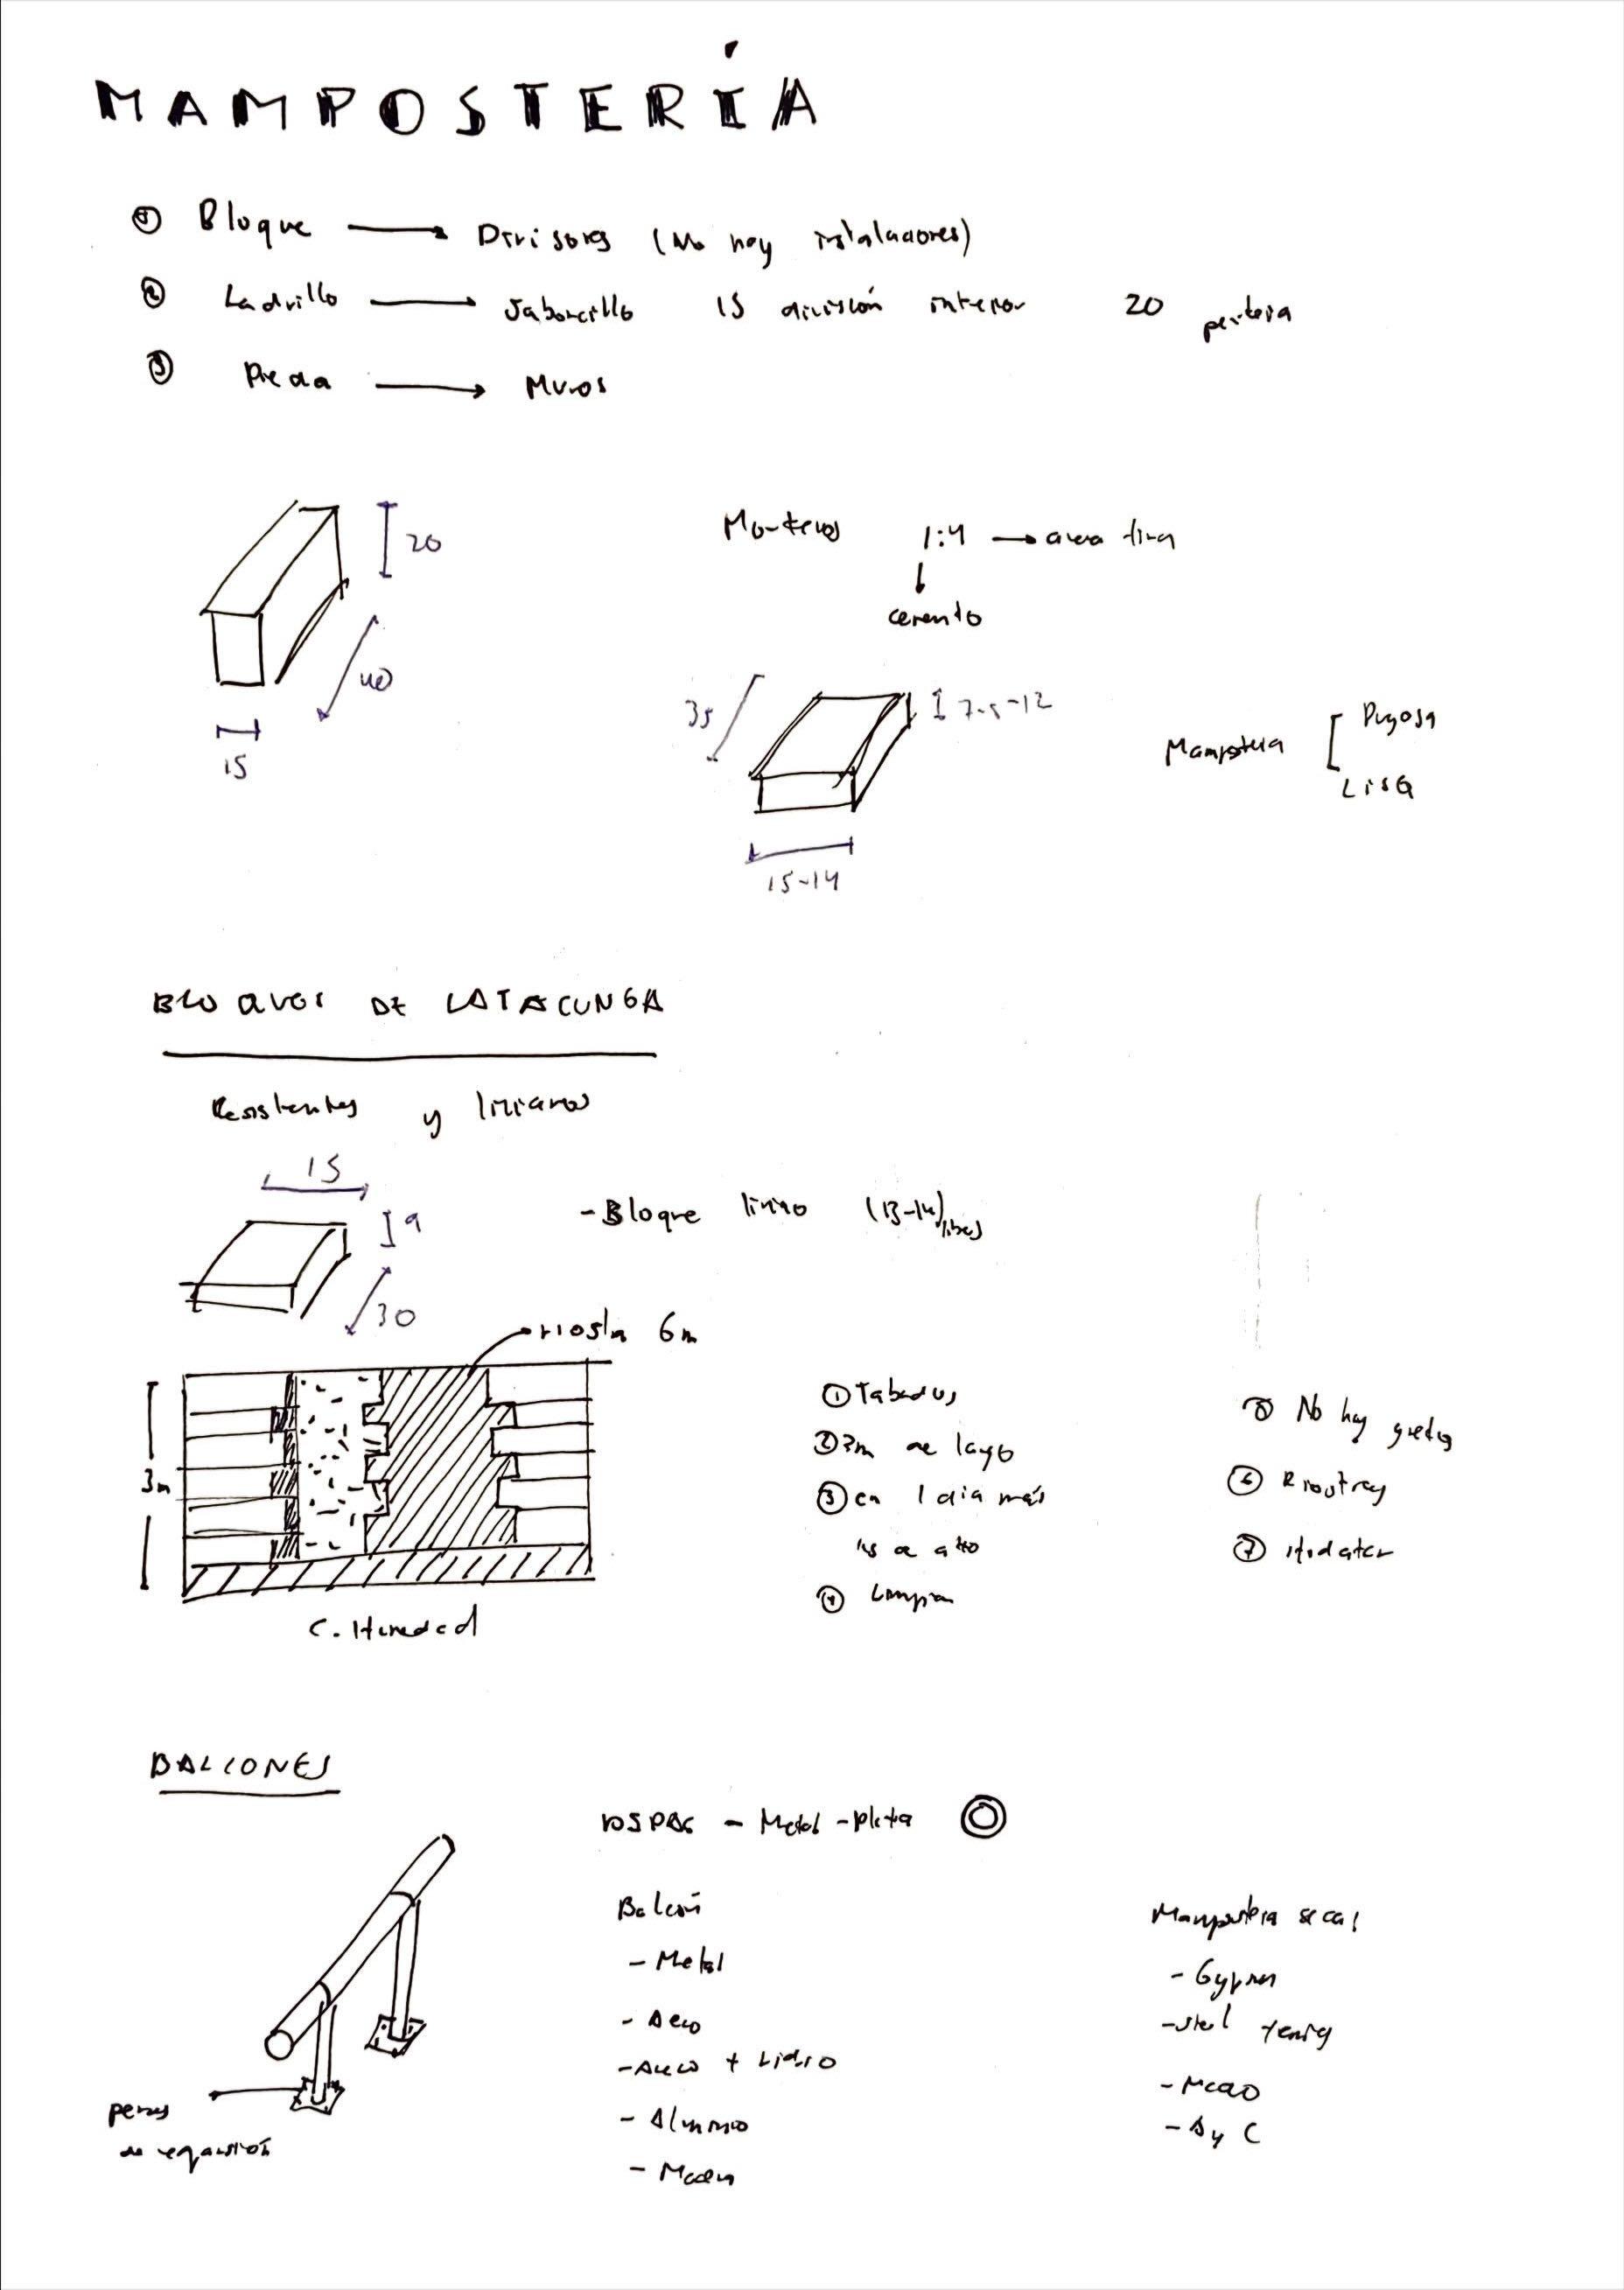 MAMPOSTERÍA
① Bloque → Divisores (No hay instalaciones)
② Ladrillo → Jaboncillo 15 división interior 20
③ Piedra → Muros
20
40
15
Morteros 1:4 → arena fina
cemento
35
15-14
Mampostería Rugosa
Lisa
BLOQUES DE LATACUNGA
Resistentes y livianos
15
9
30
- Bloque liviano (13-14) libras
riostra 6m
3m
C. Humedad
①
② 3m de largo
③ en 1 dia más
de alto
④ Limpia
⑤ No hay grietas
⑥ Riostras
⑦ Hidratar
BALCONES
- Metal - plata
pernos
de expansión
Balcón
- Metal
- Acero
- Acero + Vidrio
- Aluminio
- Madera
Mampostería seca
- Gypsum
- Steel framing
- A y C